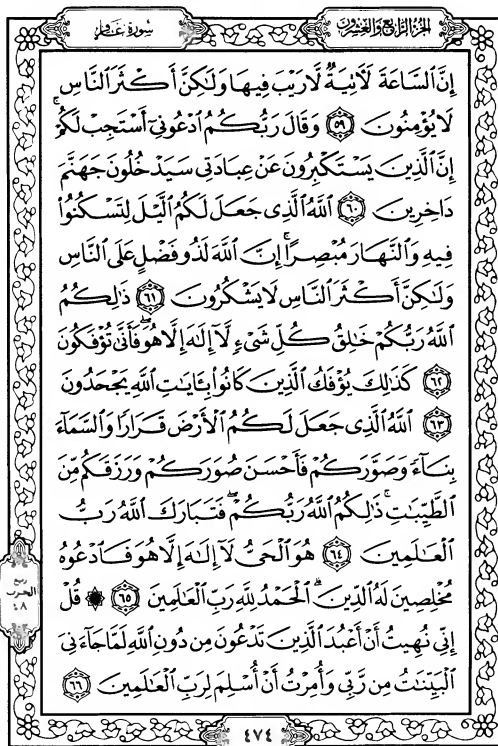 الجزء الرابع والعشرون
سورة غافر
إِنَّ ٱلسَّاعَةَ لَـَٔاتِيَةٌ لَّا رَيْبَ فِيهَا وَلَٰكِنَّ أَكْثَرَ ٱلنَّاسِ
لَا يُؤْمِنُونَ ٥٩ وَقَالَ رَبُّكُمُ ٱدْعُونِىٓ أَسْتَجِبْ لَكُمْ ۚ
إِنَّ ٱلَّذِينَ يَسْتَكْبِرُونَ عَنْ عِبَادَتِى سَيَدْخُلُونَ جَهَنَّمَ
دَاخِرِينَ ٦٠ ٱللَّهُ ٱلَّذِى جَعَلَ لَكُمُ ٱلَّيْلَ لِتَسْكُنُوا۟
فِيهِ وَٱلنَّهَارَ مُبْصِرًا ۚ إِنَّ ٱللَّهَ لَذُو فَضْلٍ عَلَى ٱلنَّاسِ
وَلَٰكِنَّ أَكْثَرَ ٱلنَّاسِ لَا يَشْكُرُونَ ٦١ ذَٰلِكُمُ
ٱللَّهُ رَبُّكُمْ خَٰلِقُ كُلِّ شَىْءٍ لَّآ إِلَٰهَ إِلَّا هُوَ ۖ فَأَنَّىٰ تُؤْفَكُونَ
٦٢ كَذَٰلِكَ يُؤْفَكُ ٱلَّذِينَ كَانُوا۟ بِـَٔايَٰتِ ٱللَّهِ يَجْحَدُونَ
٦٣ ٱللَّهُ ٱلَّذِى جَعَلَ لَكُمُ ٱلْأَرْضَ قَرَارًا وَٱلسَّمَآءَ
بِنَآءً وَصَوَّرَكُمْ فَأَحْسَنَ صُوَرَكُمْ وَرَزَقَكُم مِّنَ
ٱلطَّيِّبَٰتِ ۚ ذَٰلِكُمُ ٱللَّهُ رَبُّكُمْ ۖ فَتَبَارَكَ ٱللَّهُ رَبُّ
ٱلْعَٰلَمِينَ ٦٤ هُوَ ٱلْحَىُّ لَآ إِلَٰهَ إِلَّا هُوَ فَٱدْعُوهُ
مُخْلِصِينَ لَهُ ٱلدِّينَ ۗ ٱلْحَمْدُ لِلَّهِ رَبِّ ٱلْعَٰلَمِينَ ٦٥ ۞ قُلْ
إِنِّى نُهِيتُ أَنْ أَعْبُدَ ٱلَّذِينَ تَدْعُونَ مِن دُونِ ٱللَّهِ لَمَّا جَآءَنِىَ
ٱلْبَيِّنَٰتُ مِن رَّبِّى وَأُمِرْتُ أَنْ أُسْلِمَ لِرَبِّ ٱلْعَٰلَمِينَ ٦٦
ربع
الحزب
٤٨
٤٧٤